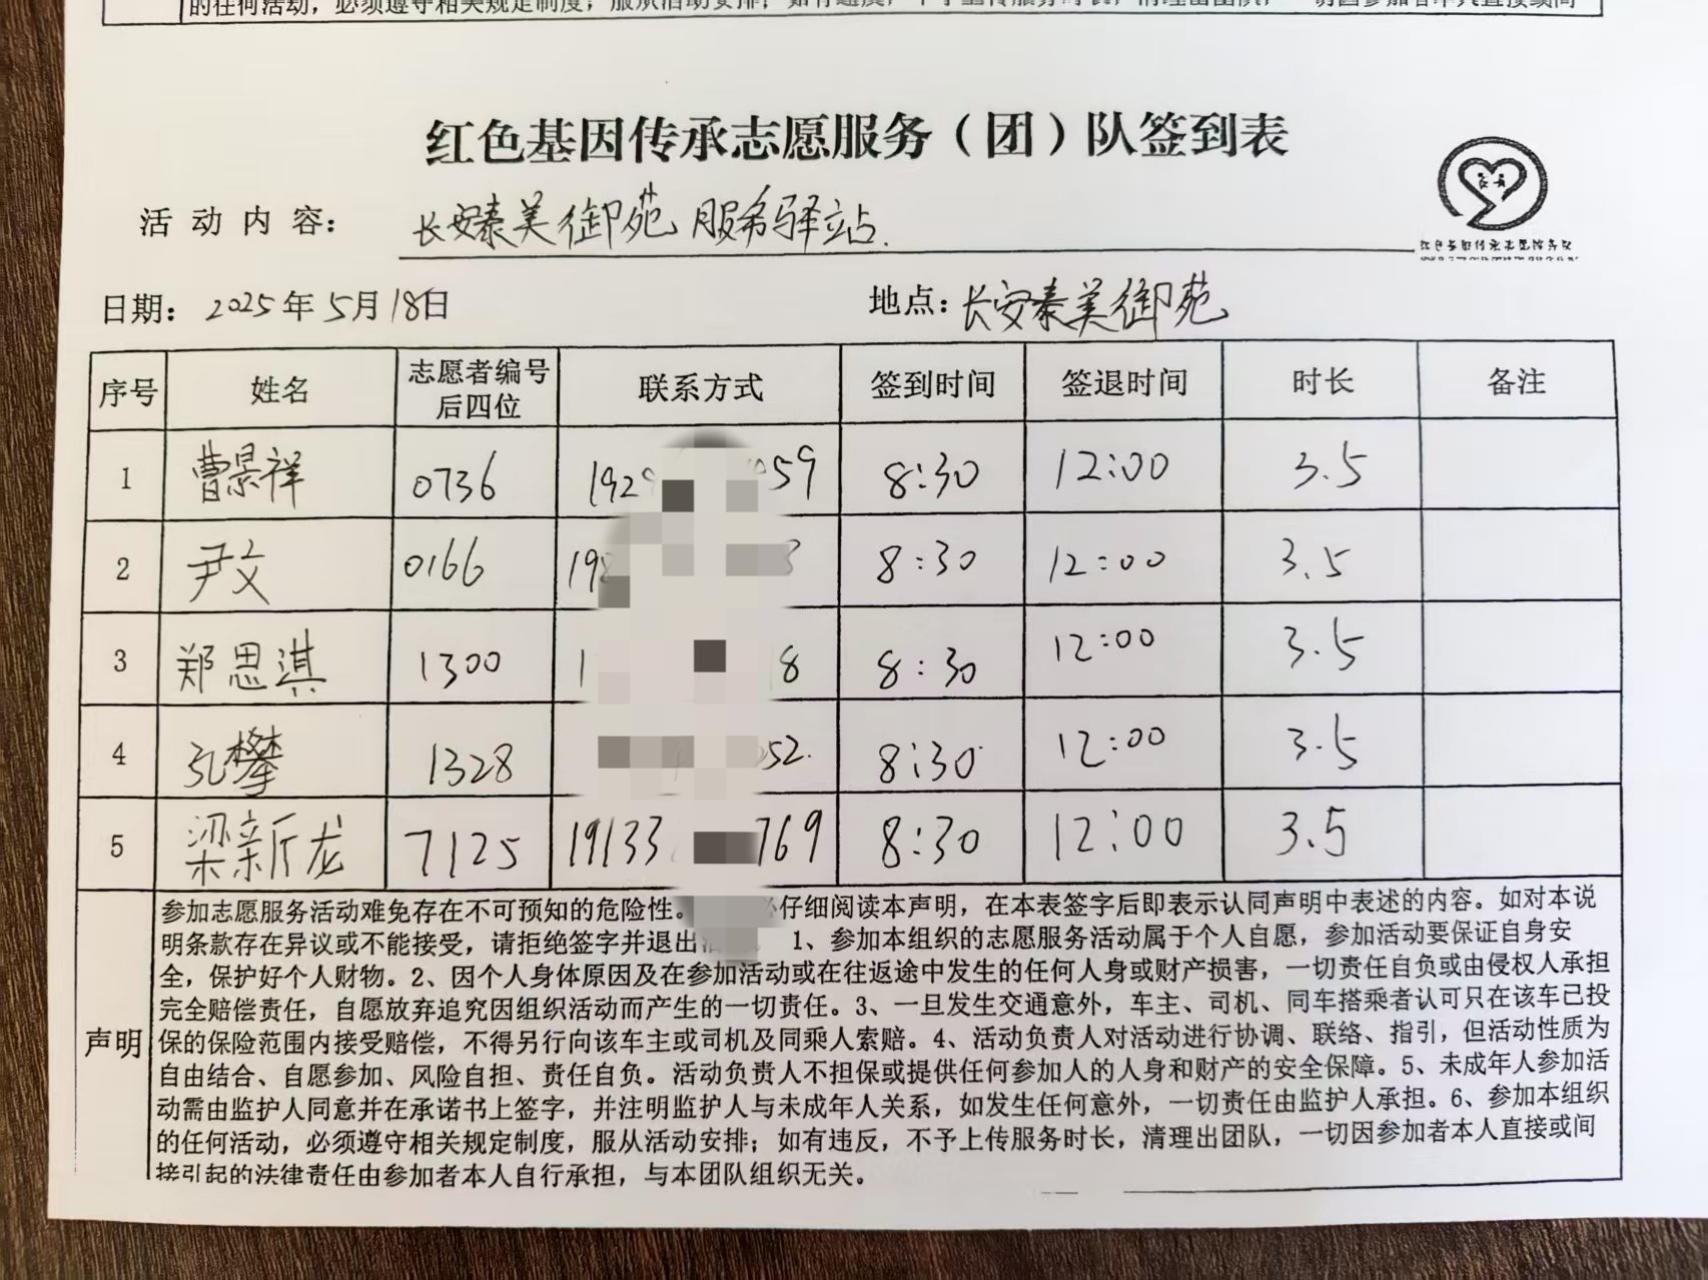 的任何活动，必须遵守相关规定制度，服从活动安排；如有违反，不予上传服务时长，清理出团队，一切因参加者本人直接或间
红色基因传承志愿服务（团）队签到表
活动内容： 长安秦美御苑 服务驿站.
日期： 2025年5月18日 地点：长安秦美御苑
序号 姓名 志愿者编号后四位 联系方式 签到时间 签退时间 时长 备注
1 曹景祥 0736 192 59 8:30 12:00 3.5
2 尹文 0166 19 8:30 12:00 3.5
3 郑思淇 1300 1 8 8:30 12:00 3.5
4 孔攀 1328 52. 8:30 12:00 3.5
5 梁新龙 7125 19133 769 8:30 12:00 3.5
声明
参加志愿服务活动难免存在不可预知的危险性。 仔细阅读本声明，在本表签字后即表示认同声明中表述的内容。如对本说
明条款存在异议或不能接受，请拒绝签字并退出 1、参加本组织的志愿服务活动属于个人自愿，参加活动要保证自身安
全，保护好个人财物。2、因个人身体原因及在参加活动或在往返途中发生的任何人身或财产损害，一切责任自负或由侵权人承担
完全赔偿责任，自愿放弃追究因组织活动而产生的一切责任。3、一旦发生交通意外，车主、司机、同车搭乘者认可只在该车已投
保的保险范围内接受赔偿，不得另行向该车主或司机及同乘人索赔。4、活动负责人对活动进行协调、联络、指引，但活动性质为
自由结合、自愿参加、风险自担、责任自负。活动负责人不担保或提供任何参加人的人身和财产的安全保障。5、未成年人参加活
动需由监护人同意并在承诺书上签字，并注明监护人与未成年人关系，如发生任何意外，一切责任由监护人承担。6、参加本组织
的任何活动，必须遵守相关规定制度，服从活动安排；如有违反，不予上传服务时长，清理出团队，一切因参加者本人直接或间
接引起的法律责任由参加者本人自行承担，与本团队组织无关。